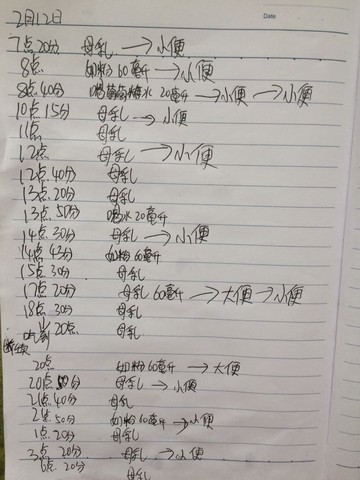 Date
2月12日
7点20分 母乳 → 小便
8点 奶粉60毫升 → 小便
8点40分 喝葡萄糖水20毫升 → 小便 → 小便
10点15分 母乳 → 小便
11点 母乳
12点 母乳 → 小便
12点40分 母乳
13点20分 母乳
13点50分 喝水20毫升
14点30分 母乳 → 小便
14点43分 奶粉60毫升
15点30分 母乳
17点20分 母乳60毫升 → 大便 → 小便
18点30分 母乳
点20分 母乳
断续
20点 奶粉60毫升 → 大便
20点50分 母乳 → 小便
21点40分 母乳
点50分 奶粉60毫升 → 小便
1点20分 母乳
3点20分 母乳 → 小便
6点20分 母乳